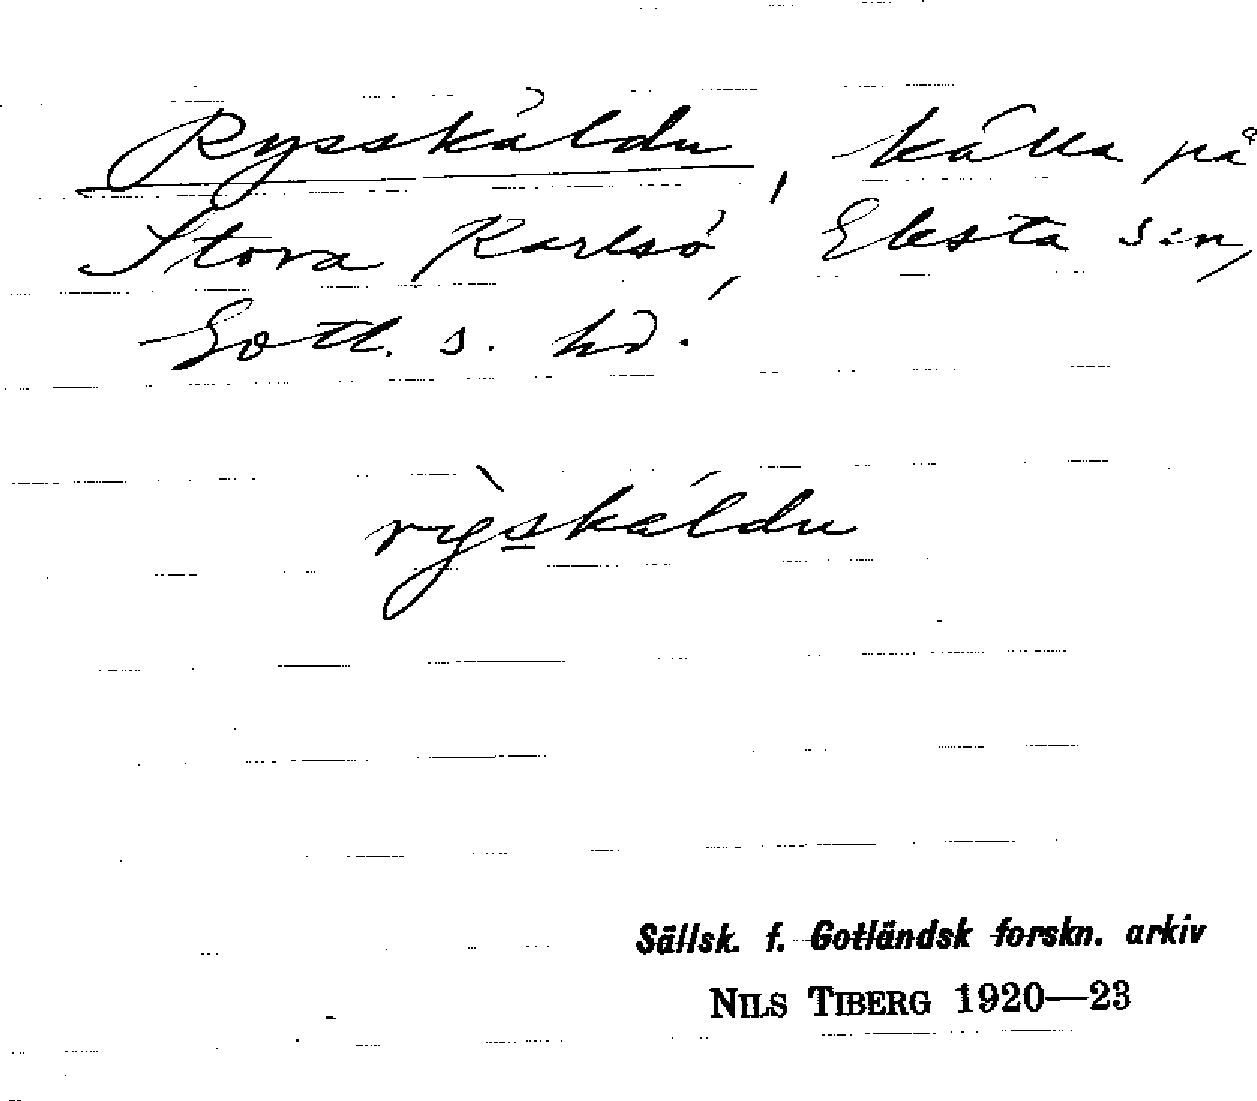 Rysskäldu, källa på
Stora Karlsö, Eksta s:n,
Gotl. s. hd.
rỳskáldu
Sällsk. f. Gotländsk forskn. arkiv
NILS TIBERG 1920—23